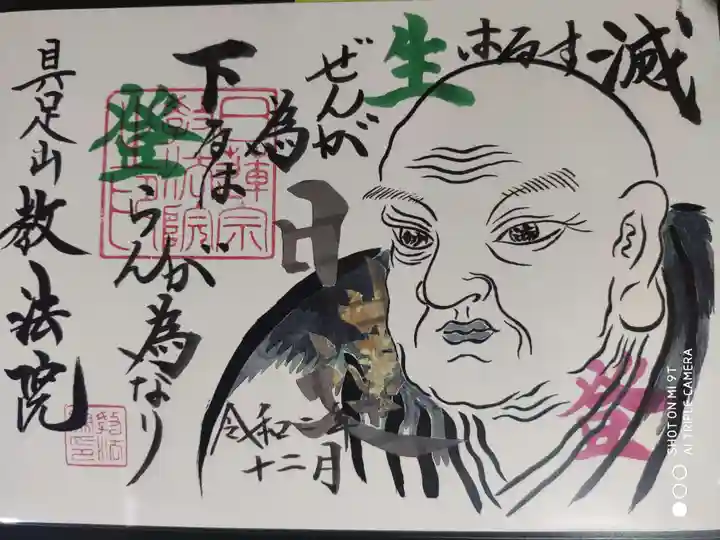 滅するは
生
ぜんが
為
下るは
登らんが為なり
日
登
令和二年
十二月
日蓮宗
教法院
具足山教法院
SHOT ON MI 9T
AI TRIPLE CAMERA